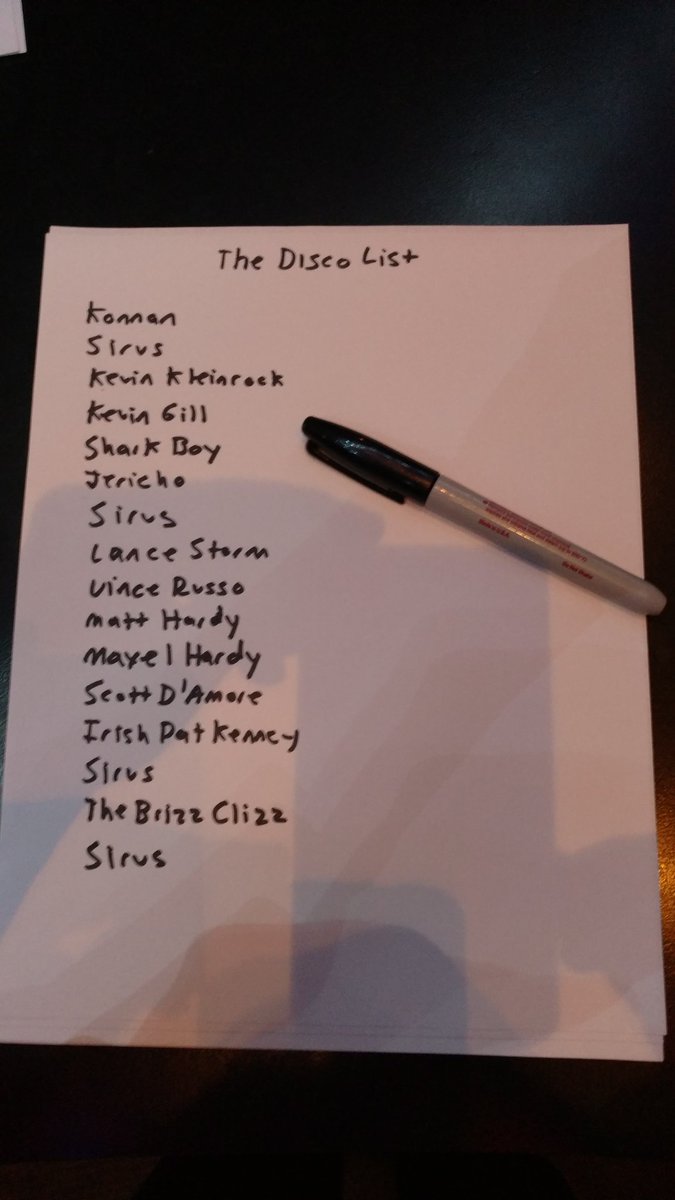 The Disco List
Konnan
Sirus
Kevin Kleinrock
Kevin Gill
Shark Boy
Jericho
Sirus
Lance Storm
Vince Russo
Matt Hardy
Maxel Hardy
Scott D'Amore
Irish Pat Kenney
Sirus
The Brizz Clizz
Sirus
Made in U.S.A.